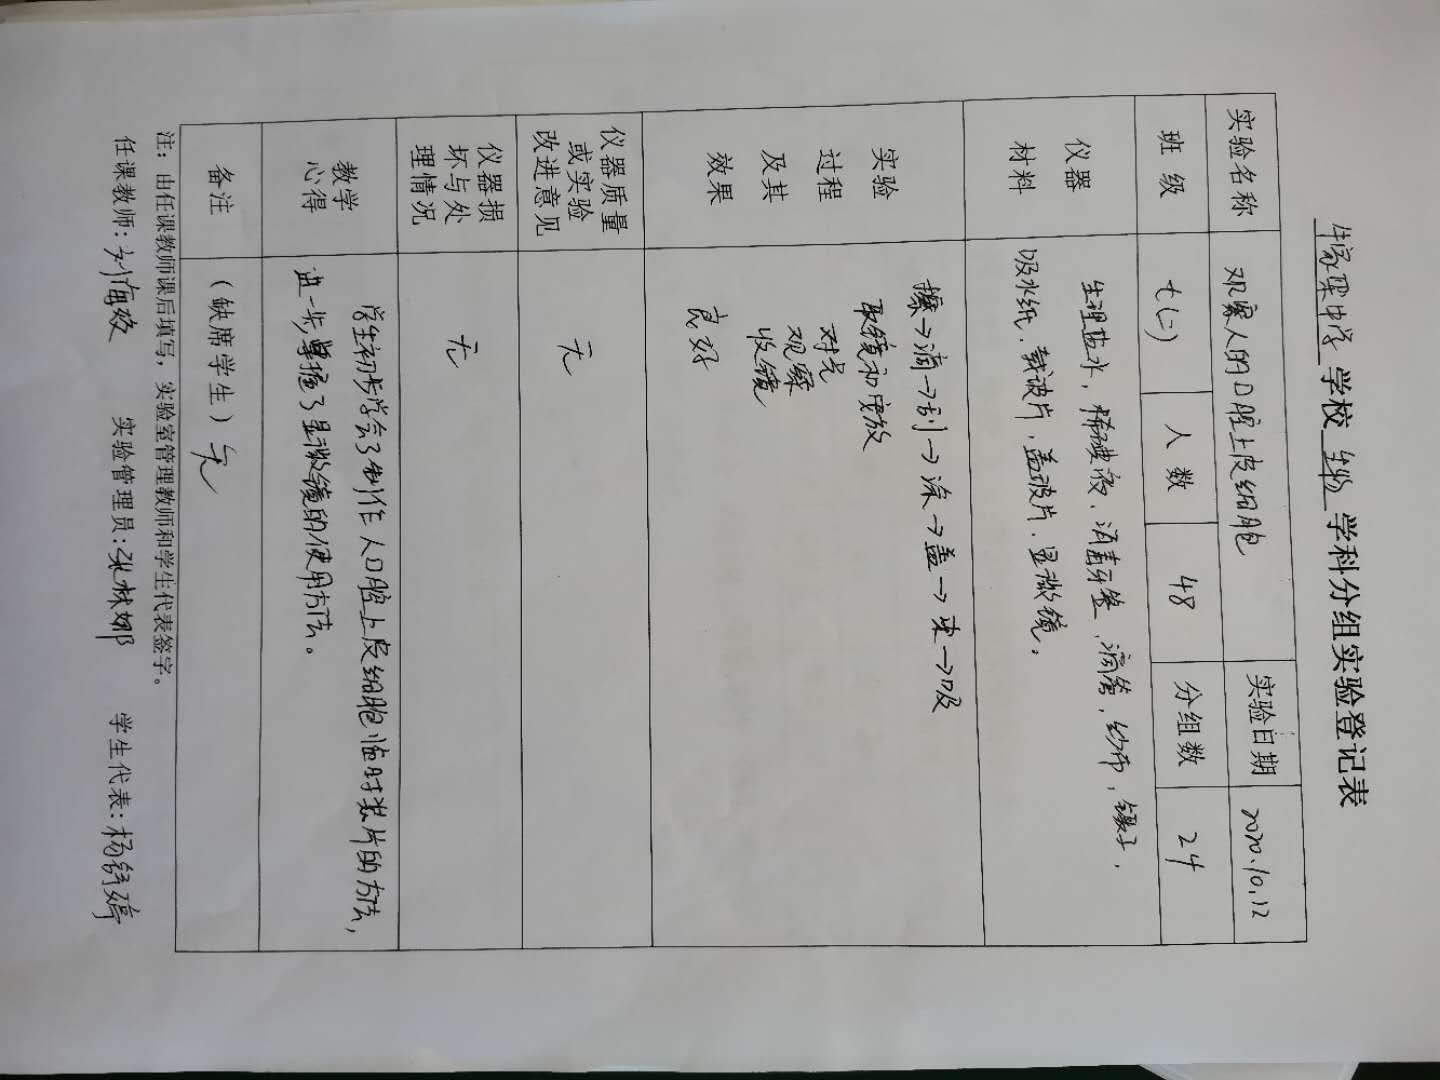 牛家梁中学学校生物学科分组实验登记表
实验名称 观察人的口腔上皮细胞 实验日期 2020.10.12
班级 七(二) 人数 48 分组数 24
仪器
材料
生理盐水，稀碘液、消毒牙签，滴管，纱布，镊子，
吸水纸、载玻片，盖玻片、显微镜。
实验
过程
及其
效果
擦→滴→刮→涂→盖→染→吸
取镜和安放
对光
观察
收镜
良好
仪器质量
或实验
改进意见
无
仪器损
坏与处
理情况
无
教学
心得
学生初步学会了制作人口腔上皮细胞临时装片的方法，
进一步掌握了显微镜的使用方法。
备注 （缺席学生）无
注：由任课教师课后填写，实验室管理教师和学生代表签字。
任课教师：刘海 实验管理员：张林娜 学生代表：杨